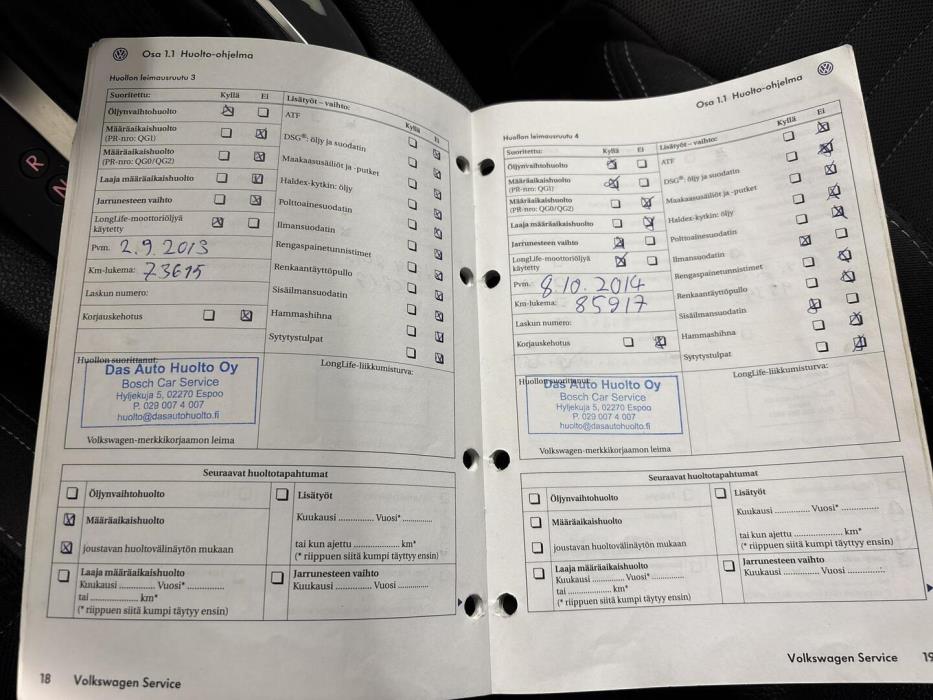 Osa 1.1 Huolto-ohjelma
Huollon leimausruutu 3
Suoritettu: Kyllä Ei
Öljynvaihtohuolto
Määräaikaishuolto
(PR-nro: QG1)
Määräaikaishuolto
(PR-nro: QG0/QG2)
Laaja määräaikaishuolto
Jarrunesteen vaihto
LongLife-moottoriöljyä
käytetty
Pvm. 2.9.2013
Km-lukema: 73615
Laskun numero:
Korjauskehotus
Lisätyöt – vaihto: Kyllä Ei
ATF
DSG®: öljy ja suodatin
Maakaasusäiliöt ja -putket
Haldex-kytkin: öljy
Polttoainesuodatin
Ilmansuodatin
Rengaspainetunnistimet
Renkaantäyttöpullo
Sisäilmansuodatin
Hammashihna
Sytytystulpat
Huollon suorittanut:
Das Auto Huolto Oy
Bosch Car Service
Hyljekuja 5, 02270 Espoo
P. 029 007 4 007
huolto@dasautohuolto.fi
Volkswagen-merkkikorjaamon leima
LongLife-liikkumisturva:
Seuraavat huoltotapahtumat
Öljynvaihtohuolto
Määräaikaishuolto
joustavan huoltovälinäytön mukaan
Laaja määräaikaishuolto
Kuukausi ............ Vuosi* ............
tai ............ km*
(* riippuen siitä kumpi täytyy ensin)
Lisätyöt
Kuukausi ............ Vuosi* ............
tai kun ajettu ............ km*
(* riippuen siitä kumpi täyttyy ensin)
Jarrunesteen vaihto
Kuukausi ............ Vuosi ............
18 Volkswagen Service
Osa 1.1 Huolto-ohjelma
Huollon leimausruutu 4
Suoritettu: Kyllä Ei
Öljynvaihtohuolto
Määräaikaishuolto
(PR-nro: QG1)
Määräaikaishuolto
(PR-nro: QG0/QG2)
Laaja määräaikaishuolto
Jarrunesteen vaihto
LongLife-moottoriöljyä
käytetty
Pvm. 8.10.2014
Km-lukema: 85917
Laskun numero:
Korjauskehotus
Lisätyöt – vaihto: Kyllä Ei
ATF
DSG®: öljy ja suodatin
Maakaasusäiliöt ja -putket
Haldex-kytkin: öljy
Polttoainesuodatin
Ilmansuodatin
Rengaspainetunnistimet
Renkaantäyttöpullo
Sisäilmansuodatin
Hammashihna
Sytytystulpat
Huollon suorittanut:
Das Auto Huolto Oy
Bosch Car Service
Hyljekuja 5, 02270 Espoo
P. 029 007 4 007
huolto@dasautohuolto.fi
Volkswagen-merkkikorjaamon leima
LongLife-liikkumisturva:
Seuraavat huoltotapahtumat
Öljynvaihtohuolto
Määräaikaishuolto
joustavan huoltovälinäytön mukaan
Laaja määräaikaishuolto
Kuukausi ............ Vuosi* ............
tai ............ km*
(* riippuen siitä kumpi täyttyy ensin)
Lisätyöt
Kuukausi ............ Vuosi* ............
tai kun ajettu ............ km*
(* riippuen siitä kumpi täyttyy ensin)
Jarrunesteen vaihto
Kuukausi ............ Vuosi ............
Volkswagen Service 19
R
N